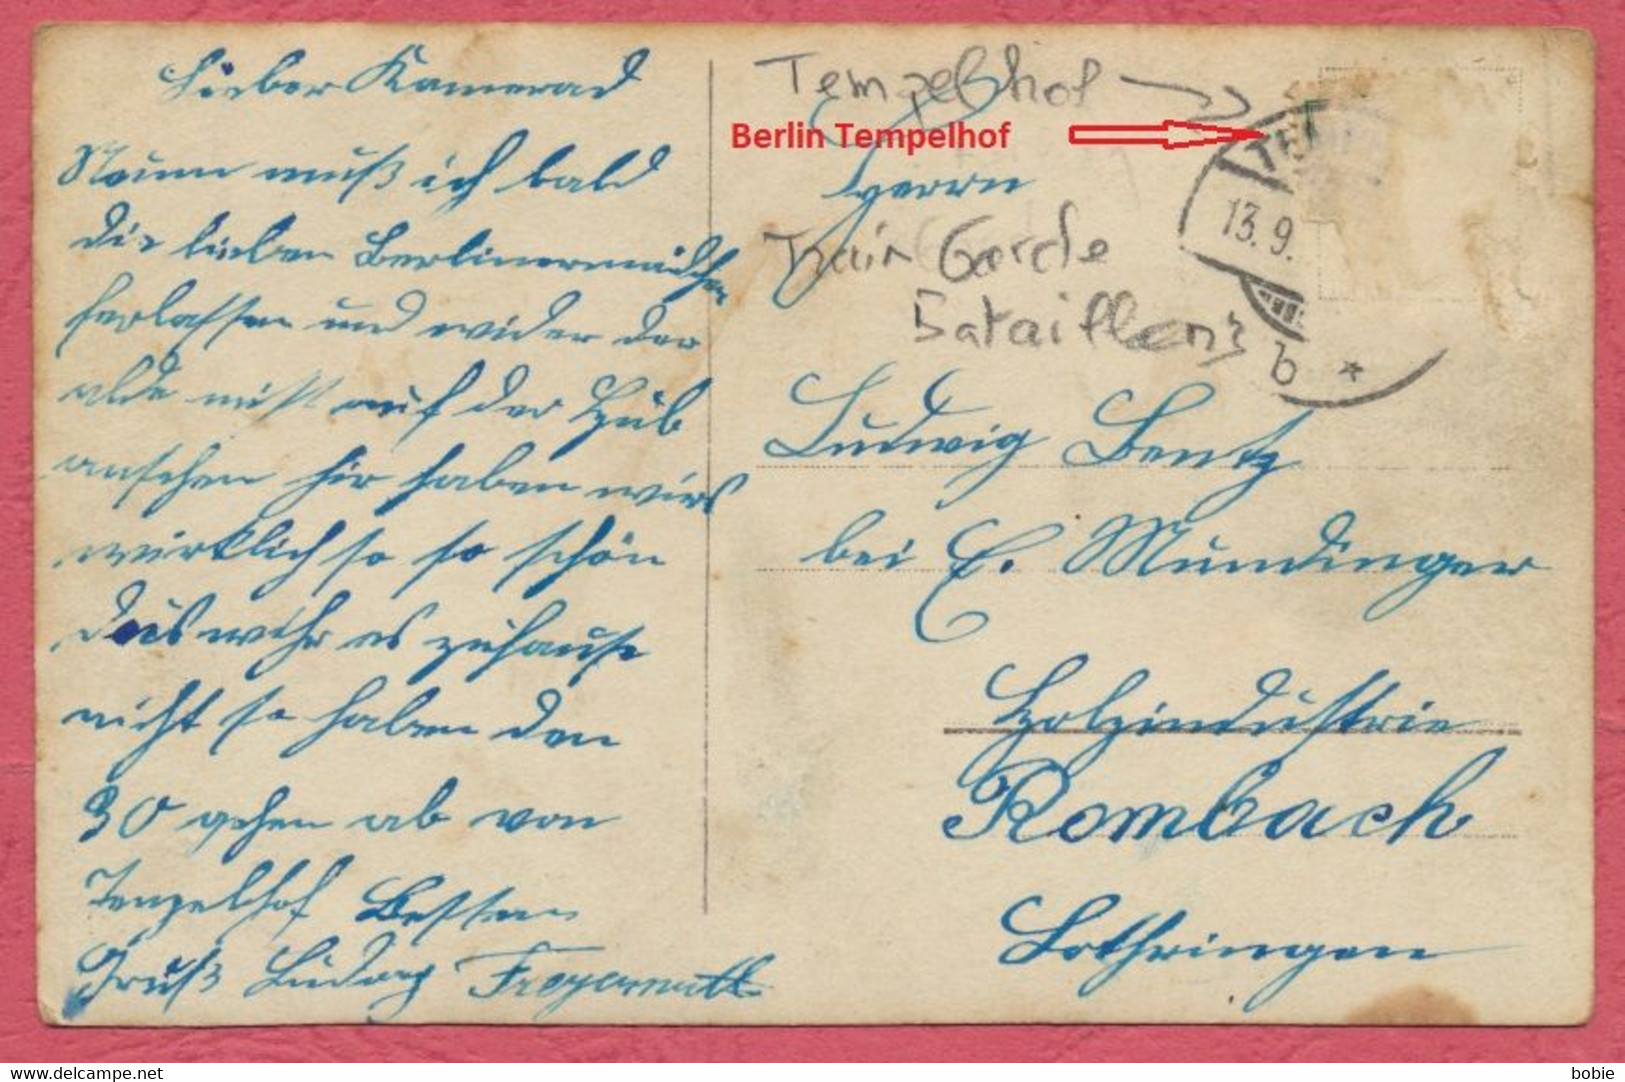 Lieber Kamerad
Nunn muß ich bald
die lieben Berlinermädchen
ferlassen und wider der
alde mist auf der Hub
anschen hir haben wirs
wirklich so so schön
das wihr es zuhause
nicht so haben den
30 gehen ab von
Tempelhof Besten
Gruß Ludwig Freyermuth
Tempelhof
Berlin Tempelhof
Herrn
Train Garde
Bataillon
Ludwig Bentz
bei E. Mundinger
Holzindustrie
Rombach
Lothringen
13.9.
b *
www.delcampe.net
bobie